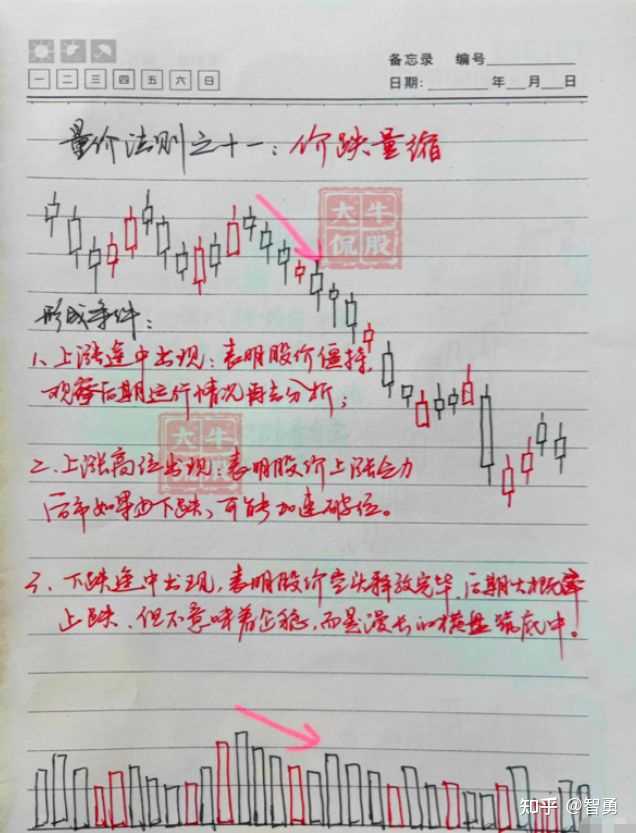 备忘录 编号
一 二 三 四 五 六 日
日期: 年 月 日
量价法则之十一：价跌量缩
大牛
侃股
形成条件：
1、上涨途中出现：表明股价僵持，
观察后期运行情况再去分析；
大牛
侃股
2、上涨高位出现：表明股价上涨乏力
后市如果由下跌、可能加速破位。
3、下跌途中出现，表明股价空头释放完毕，后期大概率
止跌、但不意味着企稳，而是漫长的横盘筑底中。
知乎 @智勇